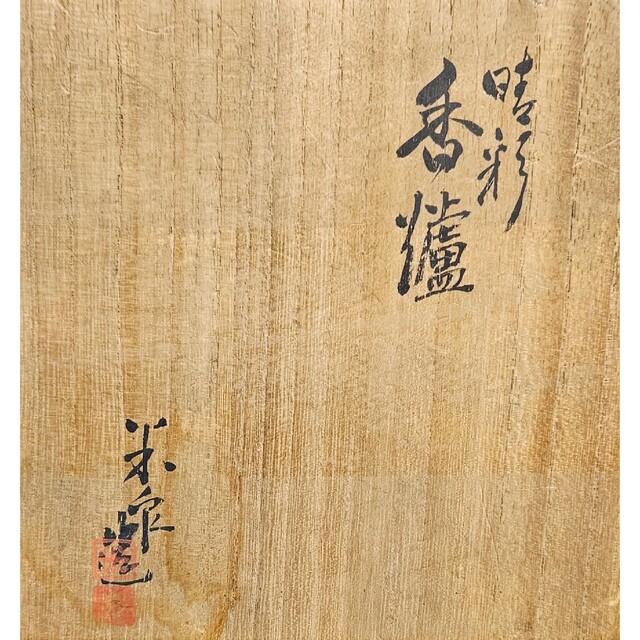 晴彩
香爐
米泉造